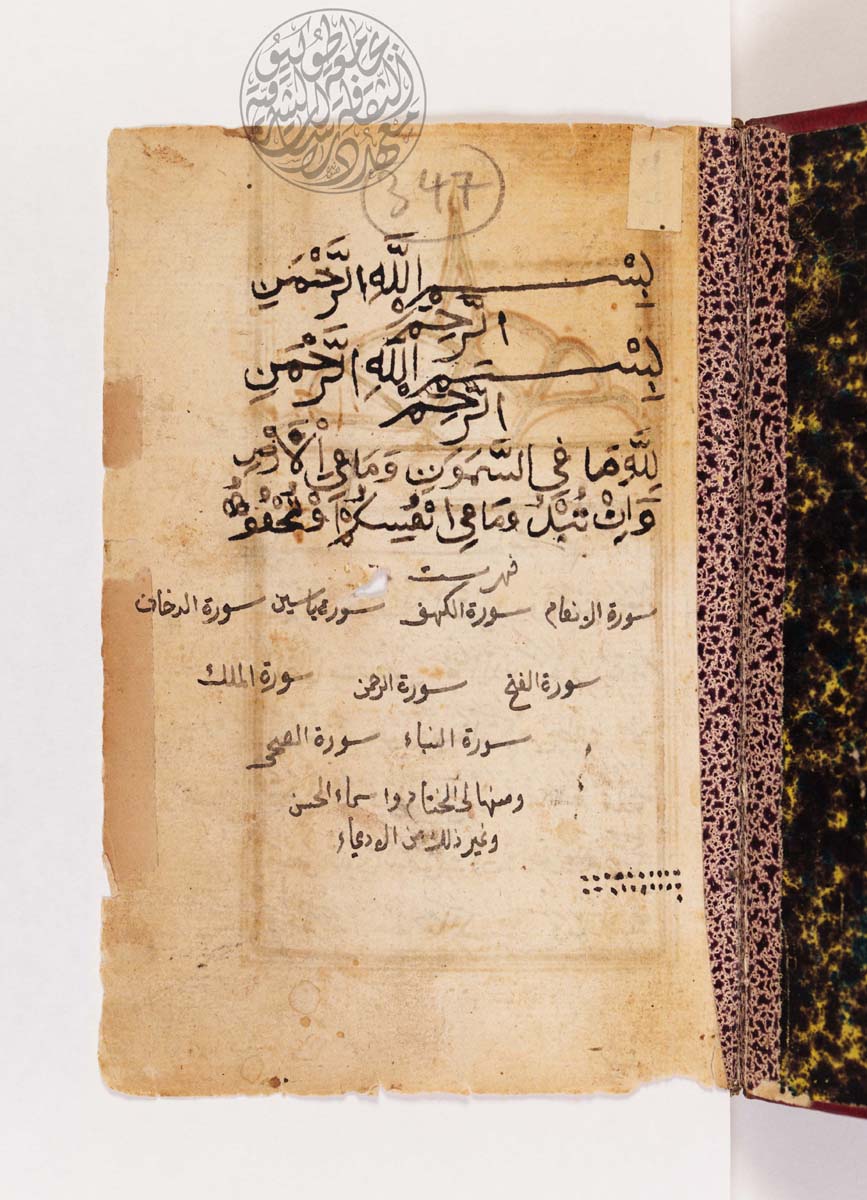 347
بِسْمِ اللَّهِ الرَّحْمَنِ
الرَّحِيمْ
بِسْمِ اللَّهِ الرَّحْمَنِ
الرَّحِيمْ
لِلَّهِ مَا فِي السَّمَوَتِ وَمَا فِي اْلاَرْضِ
وَاِنْ تُبْدُ وَمَا فِي اَنْفُسِكُمْ اَوْ تُخْفُوُ
فهرست
سورة الانعام سورة الكهف سورة ياسين سورة الدخان
سورة الفتح سورة الرحمن سورة الملك
سورة النباء سورة الضحى
ومنها الى الختام واسماء الحسن
وغير ذلك من الادعياء